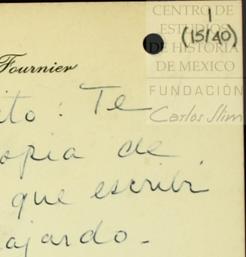 1
(15/40)
CENTRO DE
ESTUDIOS
DE HISTORIA
DE MEXICO
FUNDACIÓN
Carlos Slim
Fournier
ito: Te
opia de
que escribí
ajardo.-